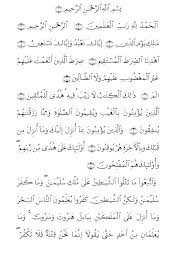 بِسْمِ ٱللَّهِ ٱلرَّحْمَٰنِ ٱلرَّحِيمِ ۝
ٱلْحَمْدُ لِلَّهِ رَبِّ ٱلْعَٰلَمِينَ ۝ ٱلرَّحْمَٰنِ ٱلرَّحِيمِ ۝
مَٰلِكِ يَوْمِ ٱلدِّينِ ۝ إِيَّاكَ نَعْبُدُ وَإِيَّاكَ نَسْتَعِينُ ۝
ٱهْدِنَا ٱلصِّرَٰطَ ٱلْمُسْتَقِيمَ ۝ صِرَٰطَ ٱلَّذِينَ أَنْعَمْتَ عَلَيْهِمْ
غَيْرِ ٱلْمَغْضُوبِ عَلَيْهِمْ وَلَا ٱلضَّآلِّينَ ۝
الٓمٓ ۝ ذَٰلِكَ ٱلْكِتَٰبُ لَا رَيْبَ فِيهِ هُدًى لِّلْمُتَّقِينَ ۝
ٱلَّذِينَ يُؤْمِنُونَ بِٱلْغَيْبِ وَيُقِيمُونَ ٱلصَّلَوٰةَ وَمِمَّا رَزَقْنَٰهُمْ
يُنفِقُونَ ۝ وَٱلَّذِينَ يُؤْمِنُونَ بِمَآ أُنزِلَ إِلَيْكَ وَمَآ أُنزِلَ مِن
قَبْلِكَ وَبِٱلْءَاخِرَةِ هُمْ يُوقِنُونَ ۝ أُو۟لَٰٓئِكَ عَلَىٰ هُدًى مِّن رَّبِّهِمْ
وَأُو۟لَٰٓئِكَ هُمُ ٱلْمُفْلِحُونَ ۝
وَٱتَّبَعُوا۟ مَا تَتْلُوا۟ ٱلشَّيَٰطِينُ عَلَىٰ مُلْكِ سُلَيْمَٰنَ وَمَا كَفَرَ
سُلَيْمَٰنُ وَلَٰكِنَّ ٱلشَّيَٰطِينَ كَفَرُوا۟ يُعَلِّمُونَ ٱلنَّاسَ ٱلسِّحْرَ
وَمَآ أُنزِلَ عَلَى ٱلْمَلَكَيْنِ بِبَابِلَ هَٰرُوتَ وَمَٰرُوتَ وَمَا
يُعَلِّمَانِ مِنْ أَحَدٍ حَتَّىٰ يَقُولَآ إِنَّمَا نَحْنُ فِتْنَةٌ فَلَا تَكْفُرْ